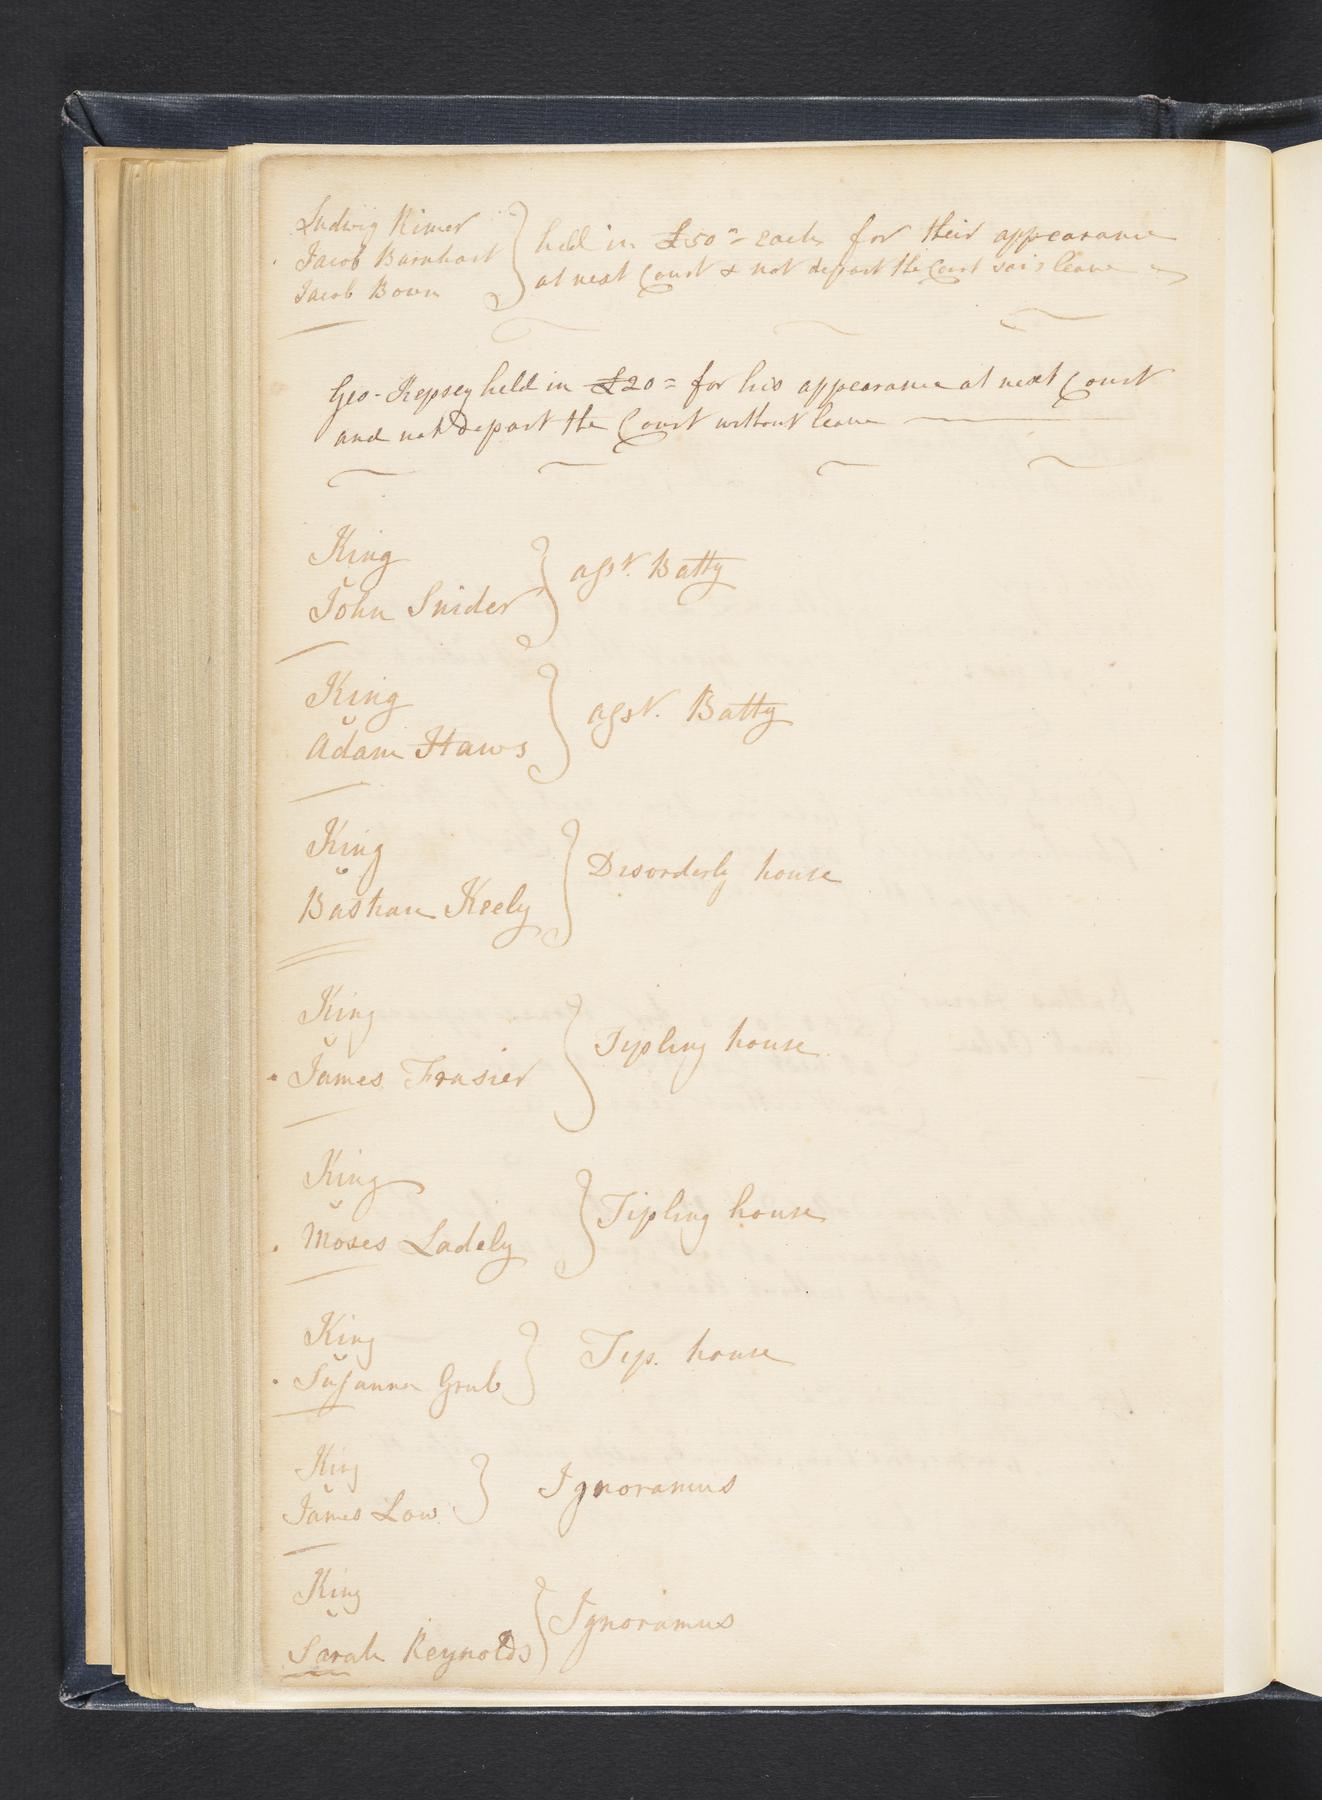 Ludwig Rimer
Jacob Barnhart
Jacob Bown
held in £50= each for their appearance
at next Court & not depart the Court sais leave
Geo. Kepsey held in £20= for his appearance at next Court
and not depart the Court without leave
King
v
John Snider
agst. Batty
King
v
Adam Haws
agst. Batty
King
v
Bastian Keely
Disorderly house
King
v
James Frasier
Tipling house
King
v
Moses Ladely
Tipling house
King
v
Susanna Grub
Tip. house
King
v
James Low
Ignoramus
King
v
Sarah Reynolds
Ignoramus